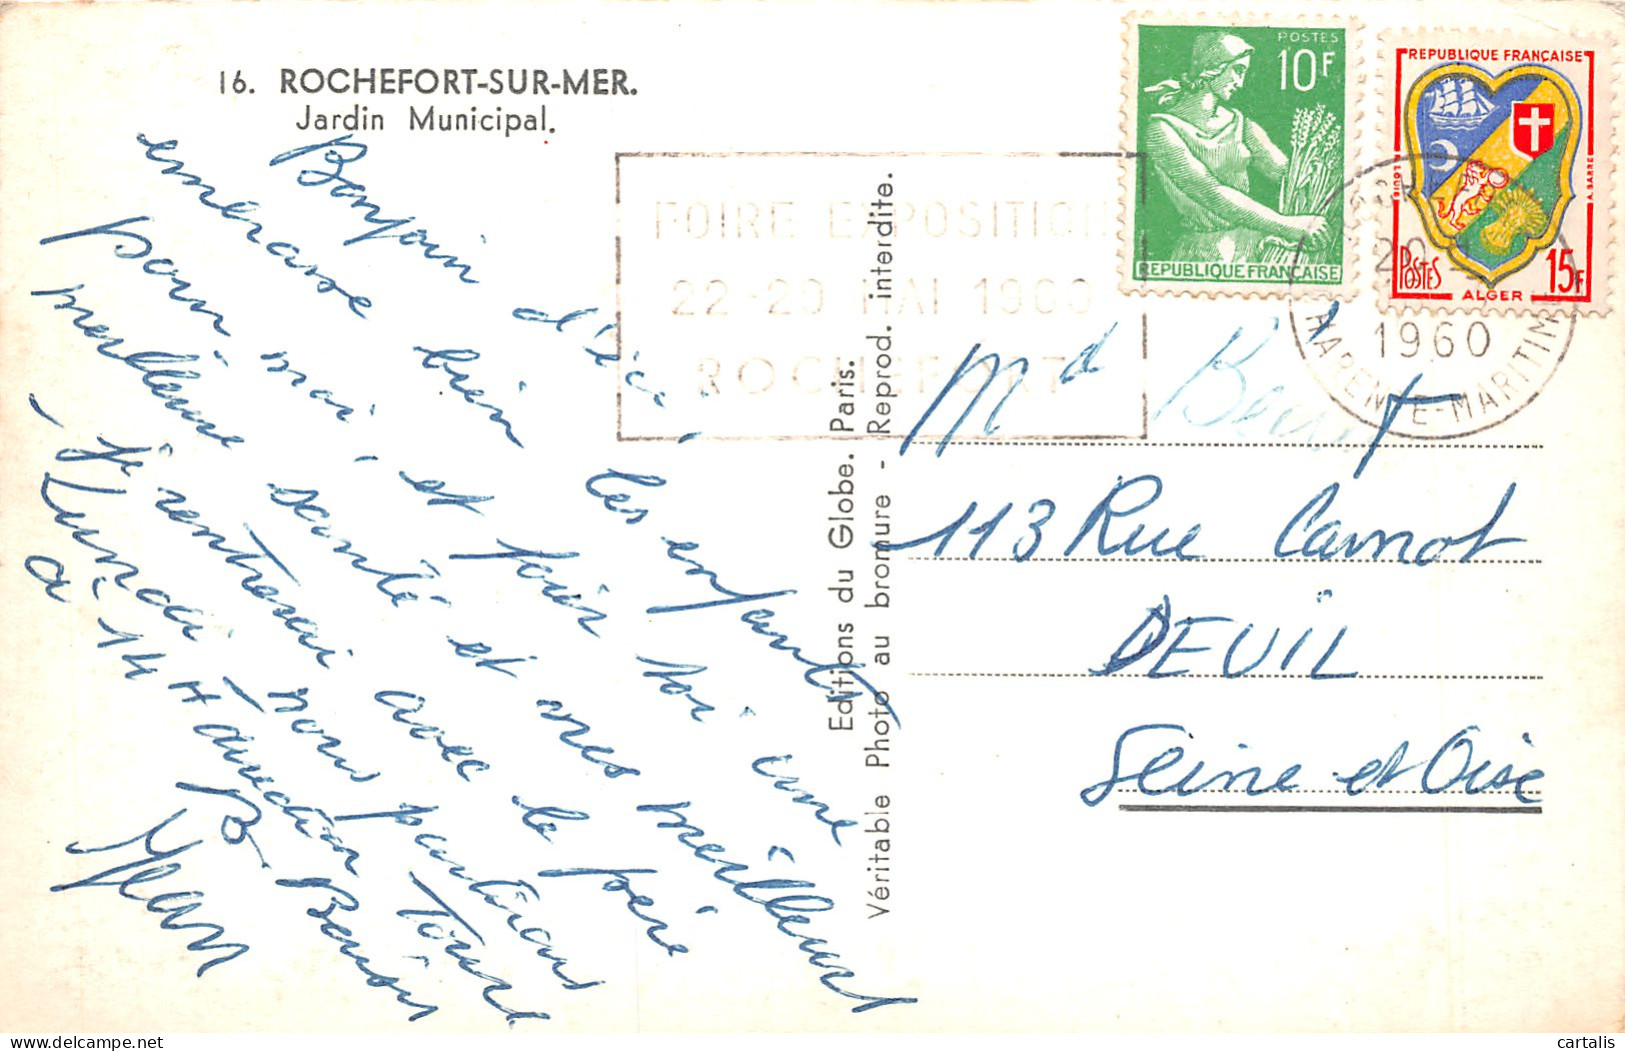 16. ROCHEFORT-SUR-MER.
Jardin Municipal.
Bonjour d'ici, les enfants
embrasse bien
pour moi, et pour toi une
meilleure santé et mes meilleurs
- je rentrerai avec le père
Lundi nous partirons
à 14 H
Bonsoir
Jean
Editions du Globe. Paris.
Véritable Photo au bromure - Reprod. interdite.
FOIRE EXPOSITION
22-29 MAI 1960
ROCHEFORT
POSTES
10F
REPUBLIQUE FRANÇAISE
REPUBLIQUE FRANÇAISE
POSTES
15F
ALGER
1960
CHARENTE-MARITIME
Md
113 Rue Carnot
DEUIL
Seine et Oise
cartalis